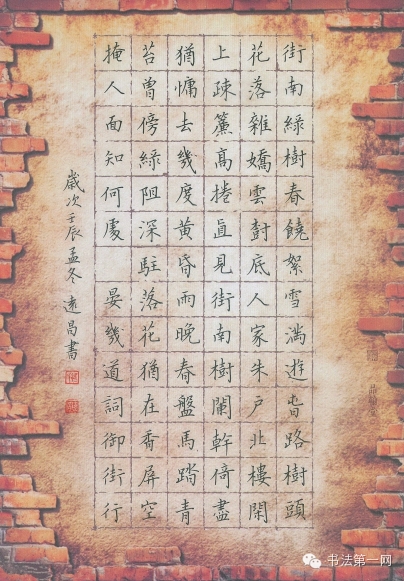 街南綠樹春饒絮雪滿遊旾路樹頭
花落雜嬌雲尌底人家朱戶北樓閑
上疎簾高捲直見街南樹闌幹倚盡
猶慵去幾度黃昏雨晚春盤馬踏青
苔曾傍綠阻深駐落花猶在香屏空
掩人面知何處 晏幾道詞御街行
歲次壬辰孟冬遠昌書
书法第一网